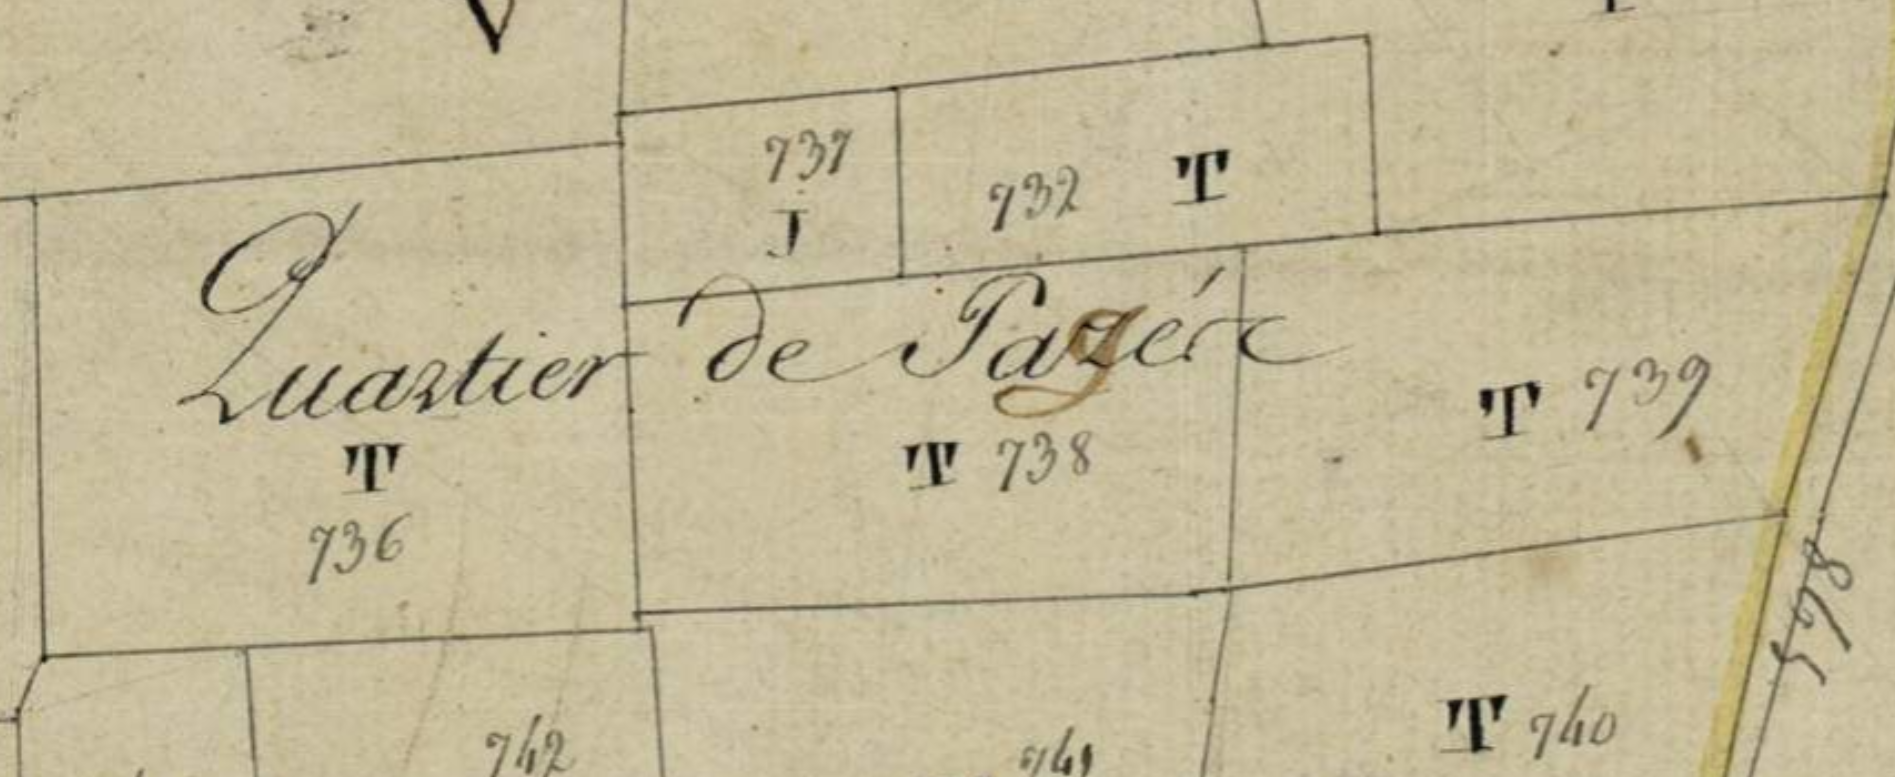 V
737
732 T
J
Quartier de Pazére
T 739
T
T 738
736
865
T 740
742
741